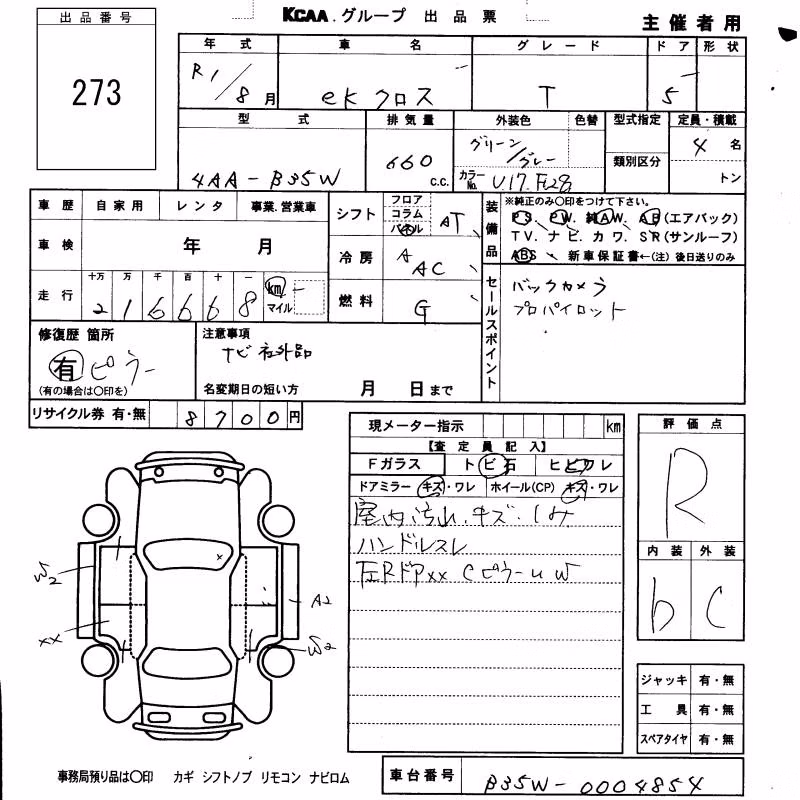 出品番号
273
KCAA.グループ 出品票
主催者用
年式 車名 グレード ドア 形状
R1/8月 eKクロス T 5
型式 排気量 外装色 色替 型式指定 定員・積載
4AA-B35W 660 c.c. グリーン/グレー 類別区分 4名
カラーNo. U17.F28 トン
車歴 自家用 レンタ 事業.営業車
シフト フロア コラム パネル AT
装備品
※純正のみ〇印をつけて下さい。
PS. PW. 純AW. AB(エアバック)
TV. ナビ. カワ. SR(サンルーフ)
ABS 新車保証書←(注)後日送りのみ
車検 年 月
冷房 A AC
走行 十万 万 千 百 十 一
2 1 6 6 6 8 km マイル
燃料 G
セールスポイント
バックカメラ
プロパイロット
修復歴 箇所
有 ピラー
(有の場合は〇印を)
注意事項
ナビ社外品
名変期日の短い方 月 日まで
リサイクル券 有・無 8700円
現メーター指示 km
【査定員記入】
Fガラス トビ石 ヒビワレ
ドアミラー キズ・ワレ ホイール(CP) キズ・ワレ
室内汚れ.キズ.しみ
ハンドルスレ
左Rドアxx CピラーuW
評価点
R
内装 外装
b C
W2
xx
A2
W2
x
ジャッキ 有・無
工具 有・無
スペアタイヤ 有・無
事務局預り品は〇印 カギ シフトノブ リモコン ナビロム
車台番号 B35W-0004854